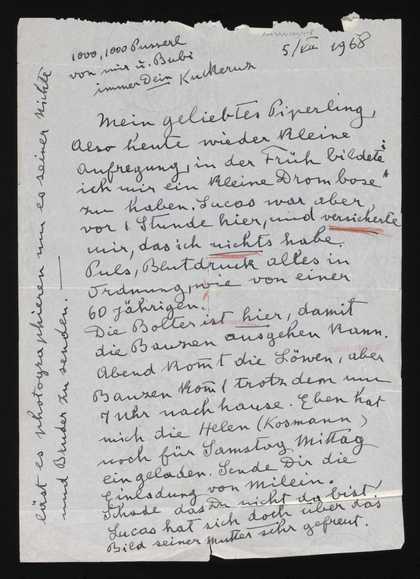 1000, 1000 Pusserl
von mir u. Bubi
immer Dein Kuckeruz
5/VII 1968
Mein geliebtes Piperling,
Also heute wieder kleine
Aufregung, in der Früh bildete
ich mir ein kleine „Drombose“
zu haben. Lucas war aber,
vor 1 Stunde hier, und versicherte
mir, das ich nichts habe.
Puls, Blutdruck alles in
Ordnung, wie von einer
60 jährigen!
Die Bolter ist hier, damit
die Bauzen ausgehen kann.
Abend kom̄t die Löwen, aber
Bauzen kom̄t trotzdem um
7 Uhr nach hause. Eben hat
mich die Helen (Kosmann)
noch für Samstag Mittag
eingeladen. Sende Dir die
Einladung von Milein.
Schade das Du nicht da bist,
Lucas hat sich doch über das
Bild seiner Mutter sehr gefreut.
läst es photographieren um es seiner Nichte
und Bruder zu senden.